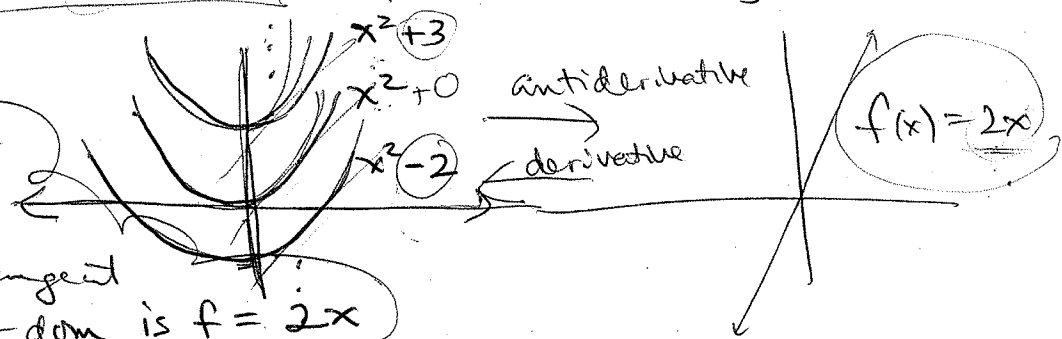 x² +3
x² +0
x² -2
antiderivative
derivative
f(x) = 2x
dom is f = 2x